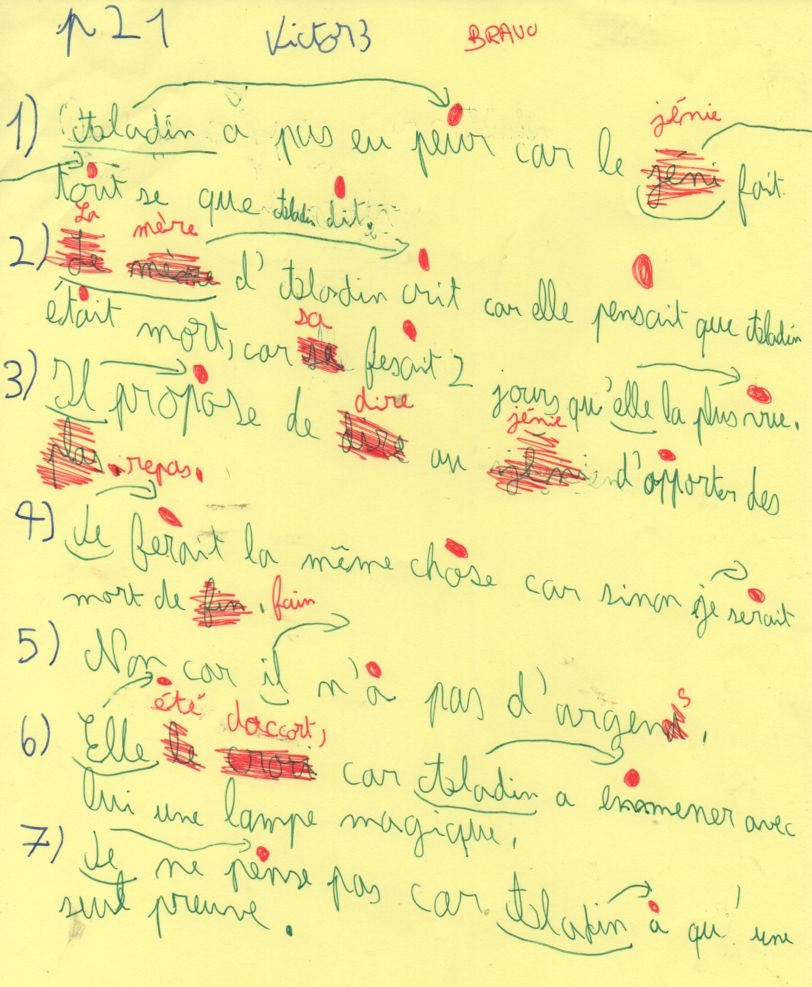 p 21 Victor3 BRAVO
1) Aladin a pas eu peur car le jénie fait
tout se que Aladin dit.
2) La mère d'Aladin crit car elle pensait que Aladin
était mort, car sa fesait 2 jours qu'elle la plus vue.
3) Il propose de dire au jénie d'apporter des
repas.
4) Je ferait la même chose car sinon je serait
mort de fain.
5) Non car il n'a pas d'argens.
6) Elle été daccort, car Aladin a enmener avec
lui une lampe magique.
7) Je ne pense pas car Aladin a qu'une
seul preuve.